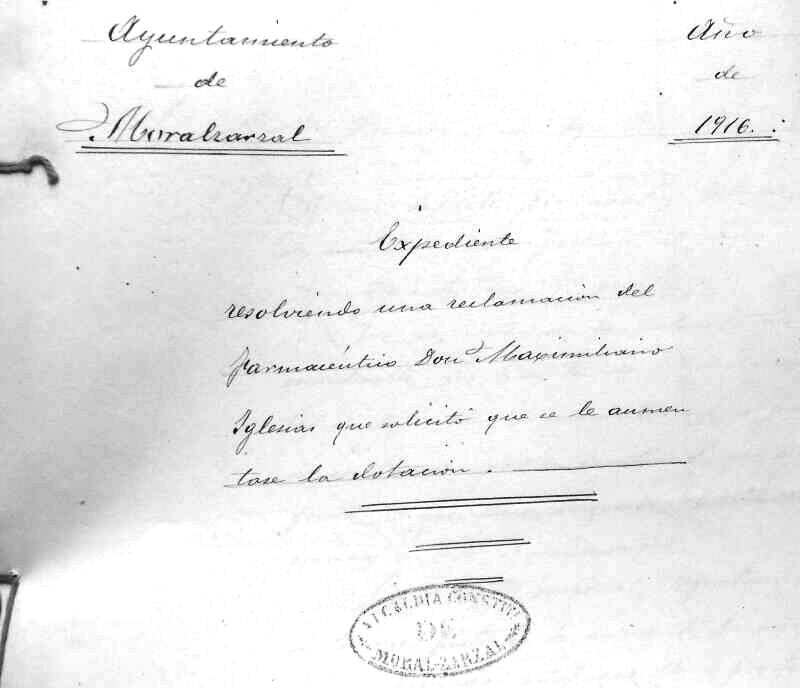 Ayuntamiento
de
Moralzarzal
Año
de
1916.
Expediente
resolviendo una reclamación del
farmacéutico Don Maximiliano
Iglesias que solicitó que se le aumen
tase la dotación.
ALCALDIA CONSTITU
DE
MORAL-ZARZAL